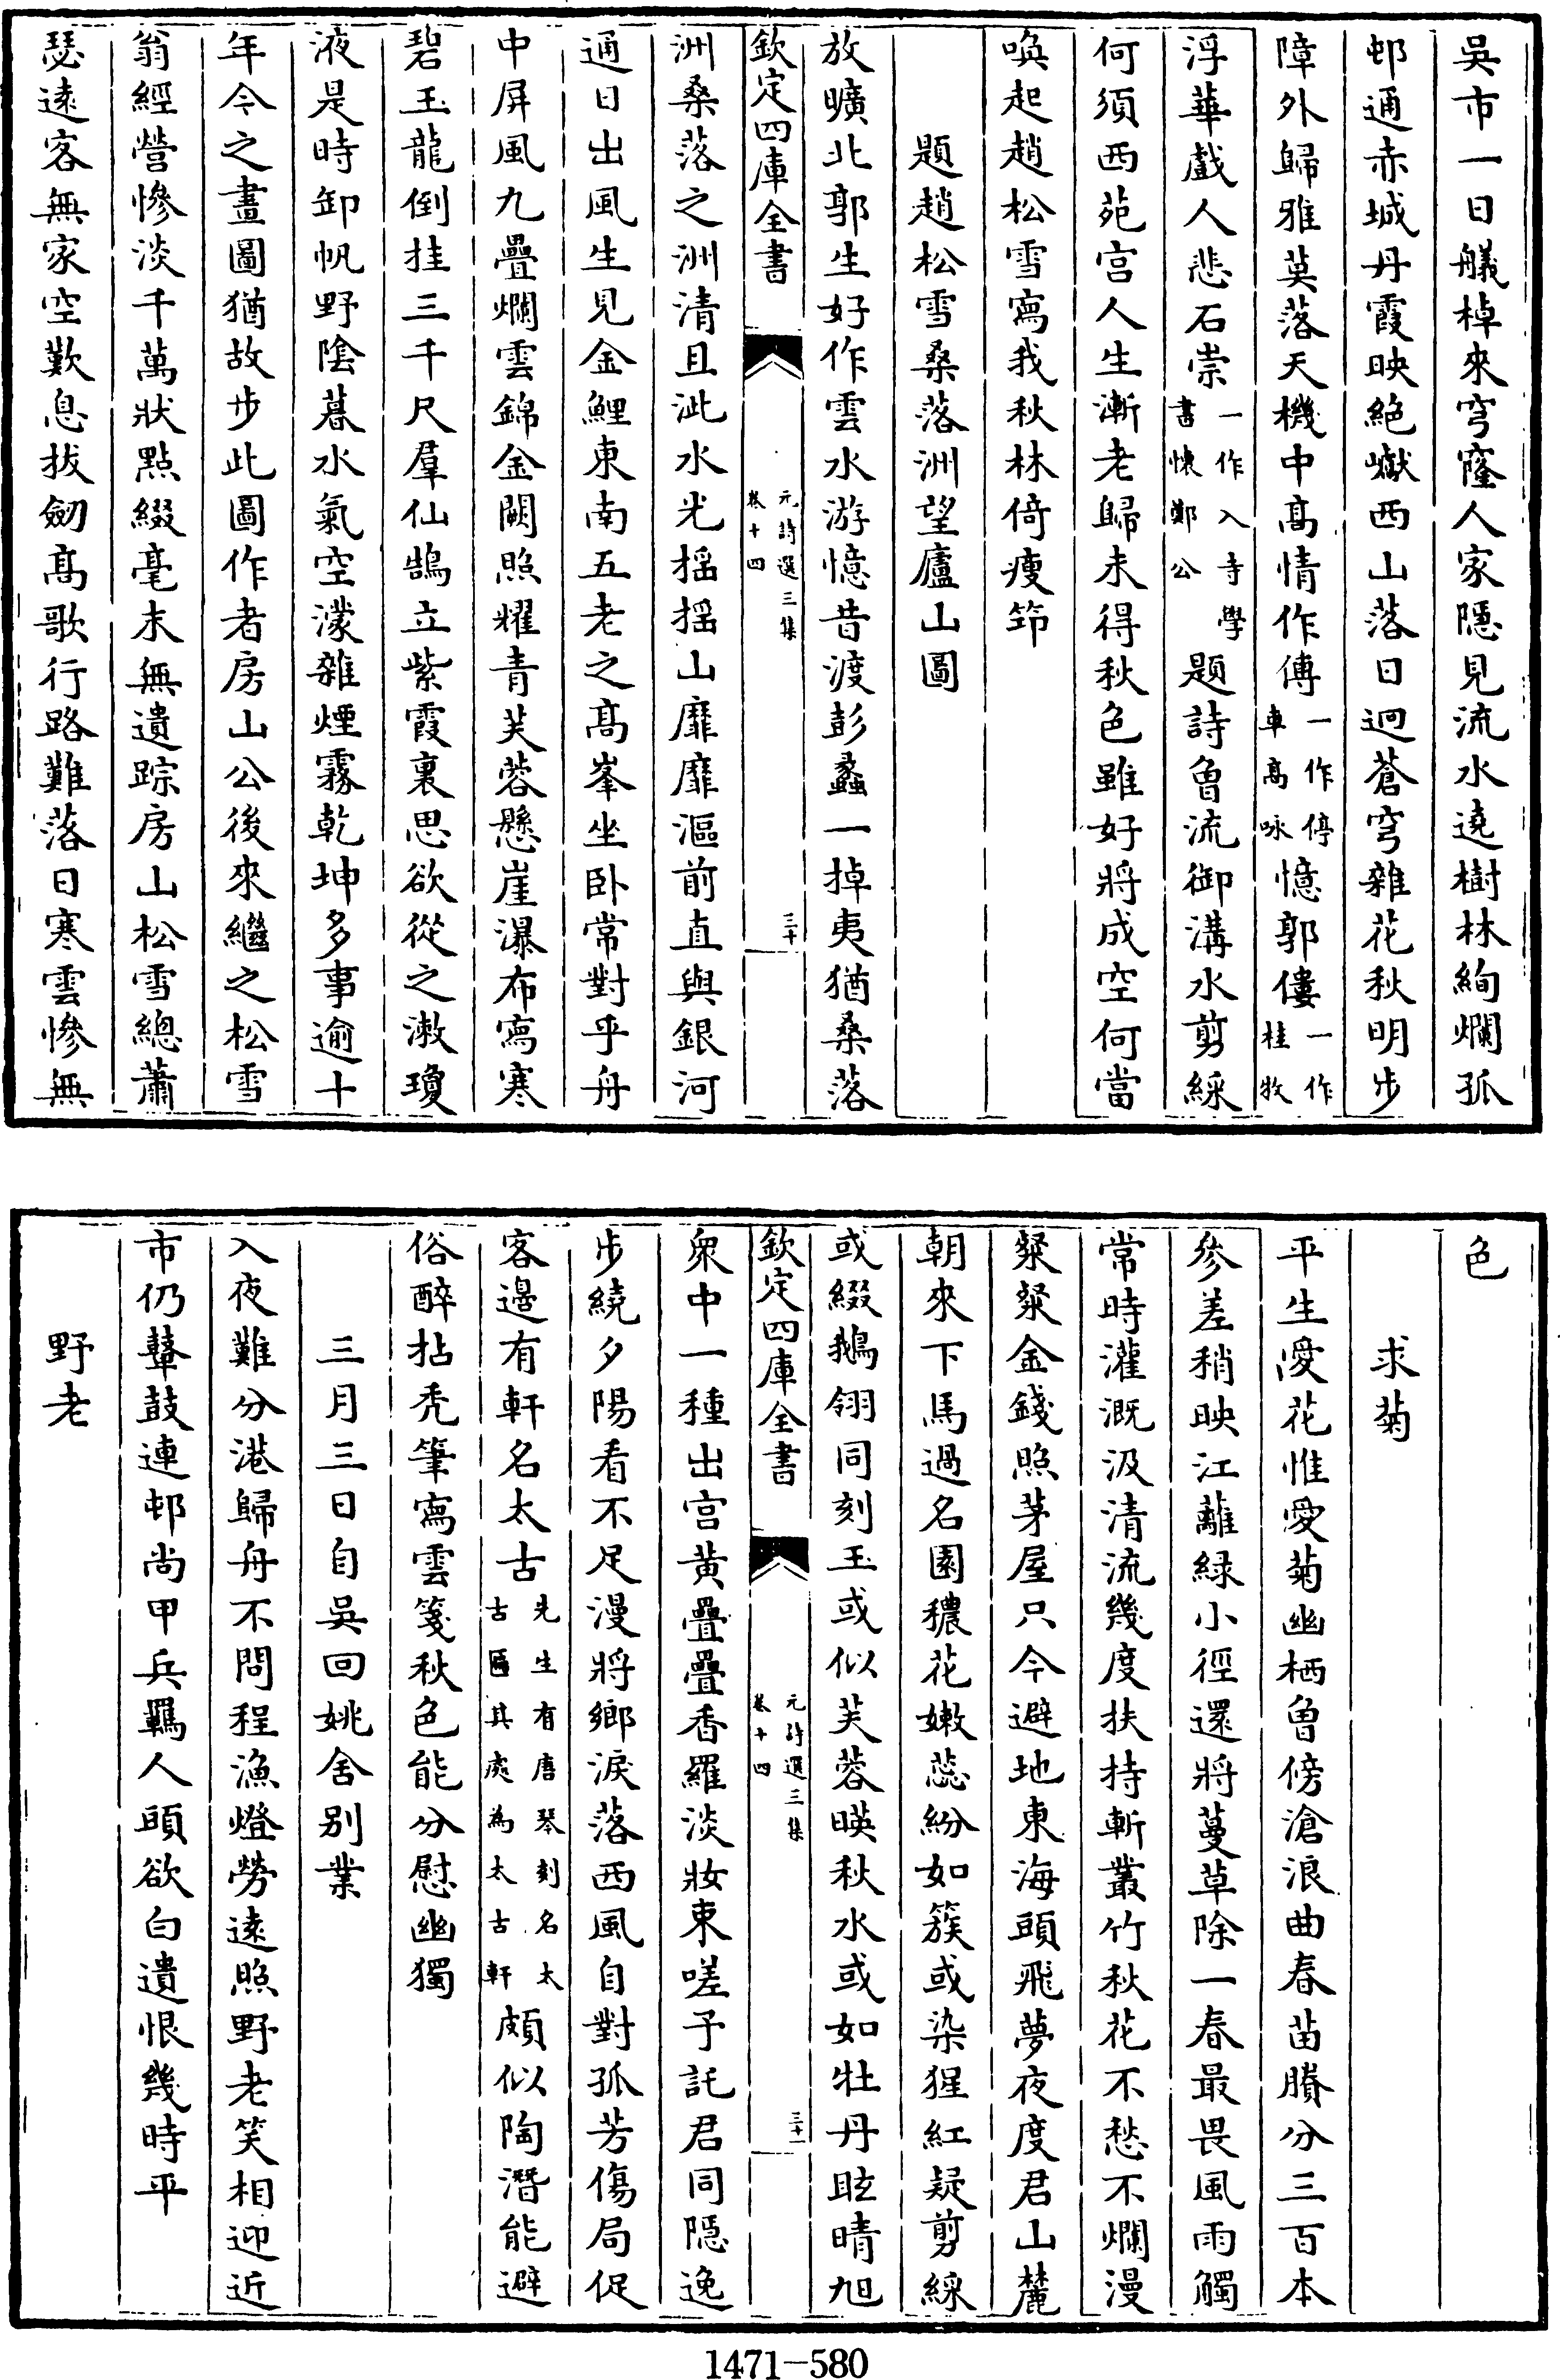 吳市一日艤棹來穹窿人家隱見流水遶樹林絢爛孤
邨通赤城丹霞映絕巘西山落日迥蒼穹雜花秋明步
障外歸雅莫落天機中髙情作傅一作停車髙咏憶郭僂一作桂牧
浮華戲人悲石崇一作入寺學書懐鄭公題詩魯流御溝水剪綵
何須西苑宫人生漸老歸未得秋色雖好將成空何當
喚起趙松雪寫我秋林倚瘦筇
題趙松雪桑落洲望廬山圖
放曠北郭生好作雲水游憶昔渡彭蠡一掉夷猶桑落
欽定四庫全書
元詩選三集
卷十四
三十
洲桑落之洲清且泚水光揺揺山靡靡漚前直與銀河
通日出風生見金鯉東南五老之髙峯坐卧常對乎舟
中屏風九疊爛雲錦金闕照耀青芙蓉懸崖瀑布寫寒
碧玉龍倒挂三千尺羣仙鵠立紫霞裏思欲從之漱瓊
液是時卸帆野陰暮水氣空濛雜煙霧乾坤多事逾十
年今之畫圖猶故步此圖作者房山公後來繼之松雪
翁經營慘淡千萬狀點綴毫末無遺踪房山松雪總蕭
瑟逺客無家空歎息拔劒髙歌行路難落日寒雲慘無
色
求菊
平生愛花惟愛菊幽栖曽傍滄浪曲春苗賸分三百本
參差稍映江蘺緑小徑還將蔓草除一春最畏風雨觸
常時灌溉汲清流幾度扶持斬叢竹秋花不愁不爛漫
粲粲金錢照茅屋只今避地東海頭飛夢夜度君山麓
朝來下馬過名園穠花嫩蕊紛如簇或染猩紅疑剪綵
或綴鵝翎同刻玉或似芙蓉暎秋水或如牡丹眩晴旭
欽定四庫全書
元詩選三集
卷十四
三十一
衆中一種出宫黄疊疊香羅淡妝束嗟予託君同隠逸
步繞夕陽看不足漫將鄉淚落西風自對孤芳傷局促
客邉有軒名太古先生有唐琴刻名太古區其處為太古軒頗似陶潛能避
俗醉拈秃筆寫雲箋秋色能分慰幽獨
三月三日自吳回姚舍别業
入夜難分港歸舟不問程漁燈勞逺照野老笑相迎近
市仍鼙鼓連邨尚甲兵羈人頭欲白遺恨幾時平
野老
1471-580